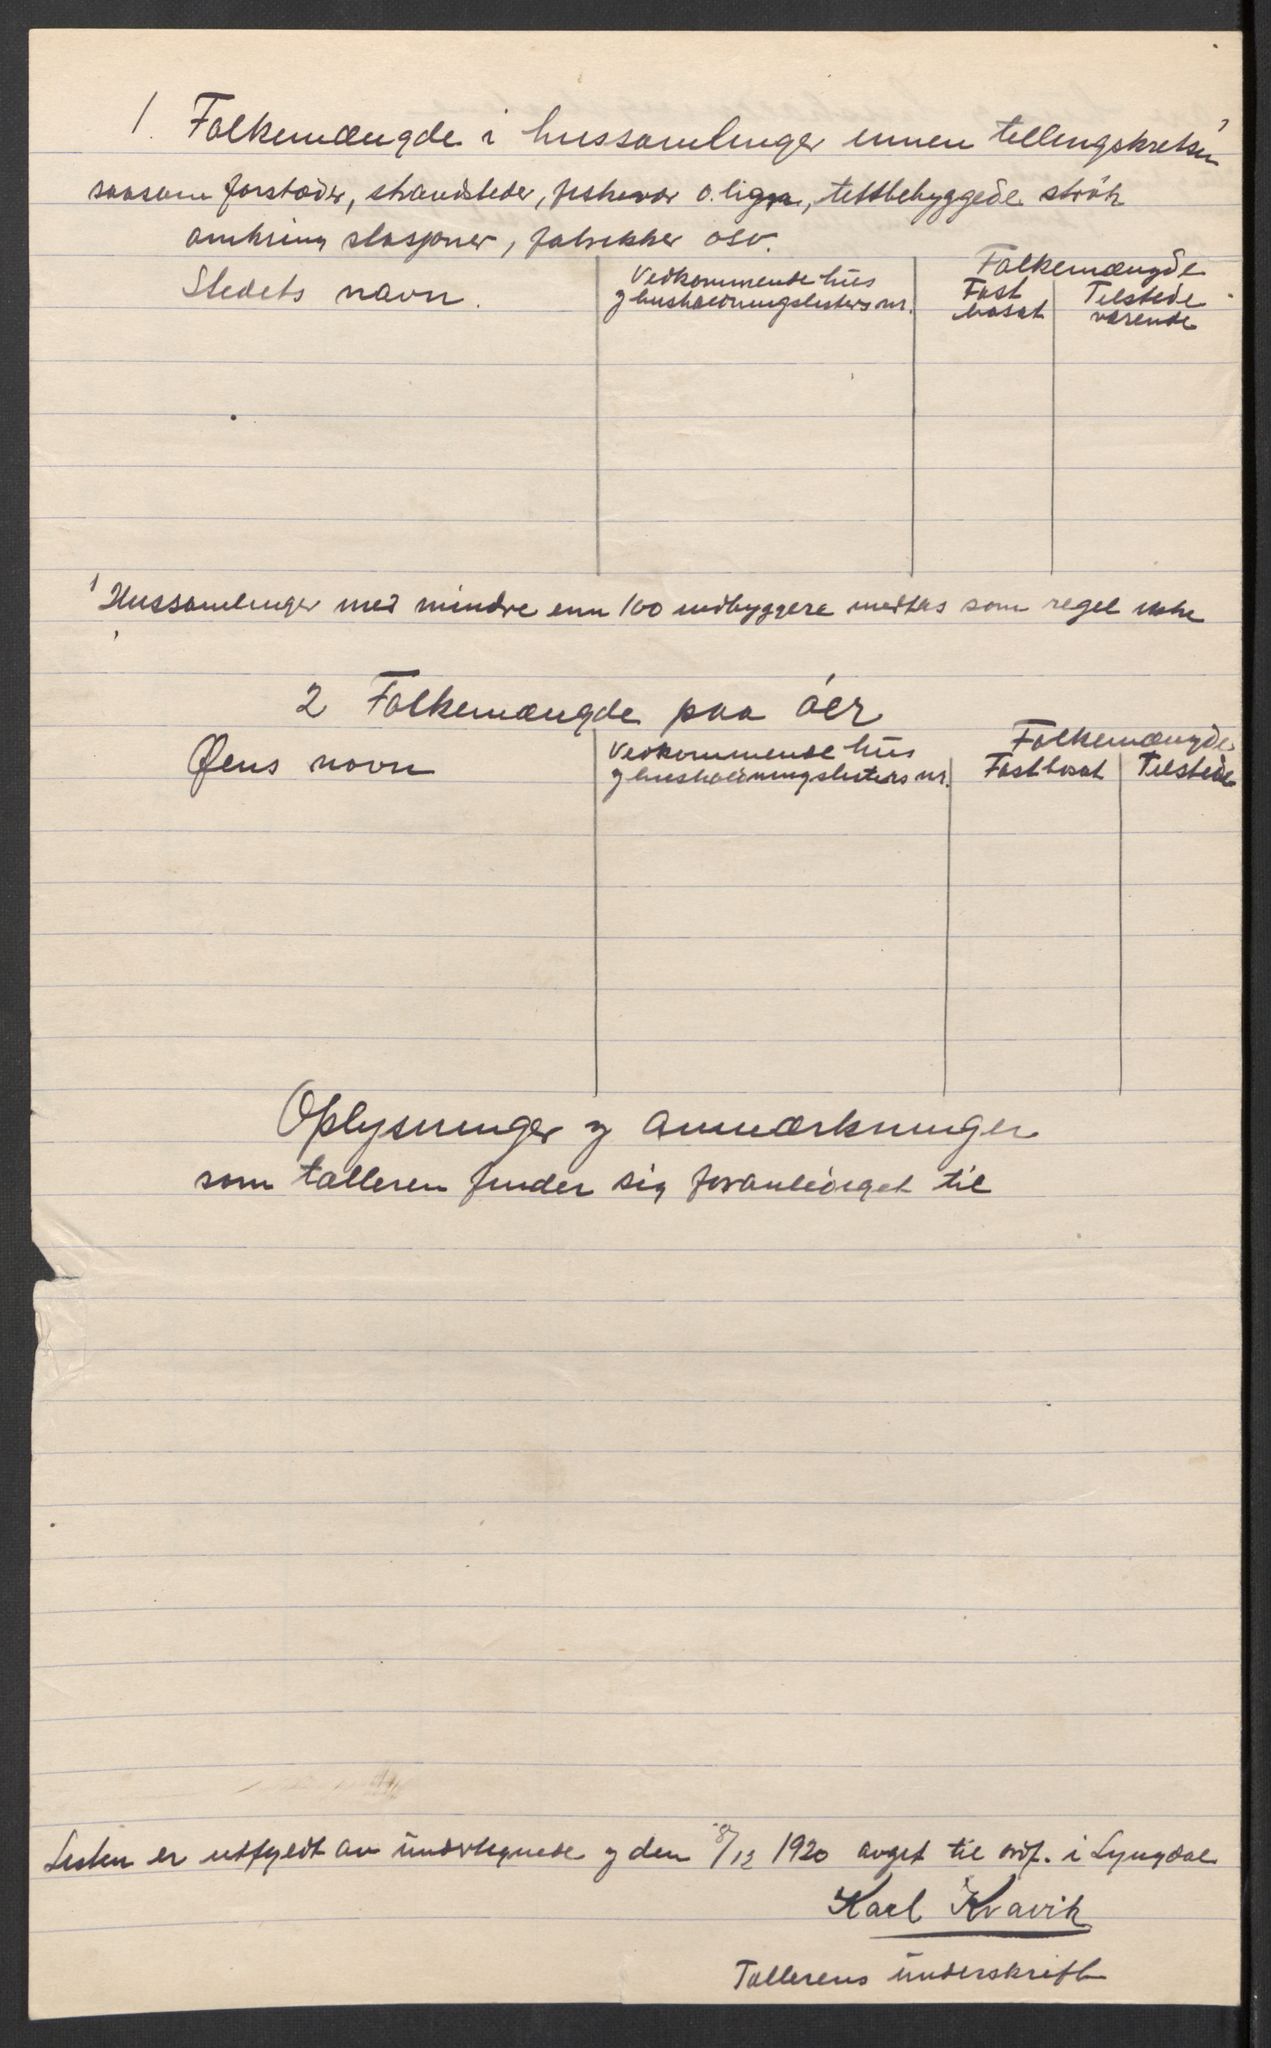 1. Folkemængde i hussamlinger innen tellingskretsen ¹
saasom forstæder, strandsteder, fiskevær o. lign, tettbebyggede strök
omkring stasjoner, fabrikker osv.
Stedets navn.
Vedkommende hus
og husholdningslisters nr.
Folkemængde
Fast bosat
Tilstede værende
¹ Hussamlinger med mindre enn 100 indbyggere medtas som regel ikke
2 Folkemængde paa öer
Øens navn
Vedkommende hus
og husholdningslisters nr.
Folkemængde
Fast bosat
Tilstede
Oplysninger og anmærkninger
som tælleren finder sig foranlediget til
Listen er utfyldt av undertegnede og den 8/12 1920 avgit til ordf. i Lyngdal
Karl Kvavik
Tællerens underskrift